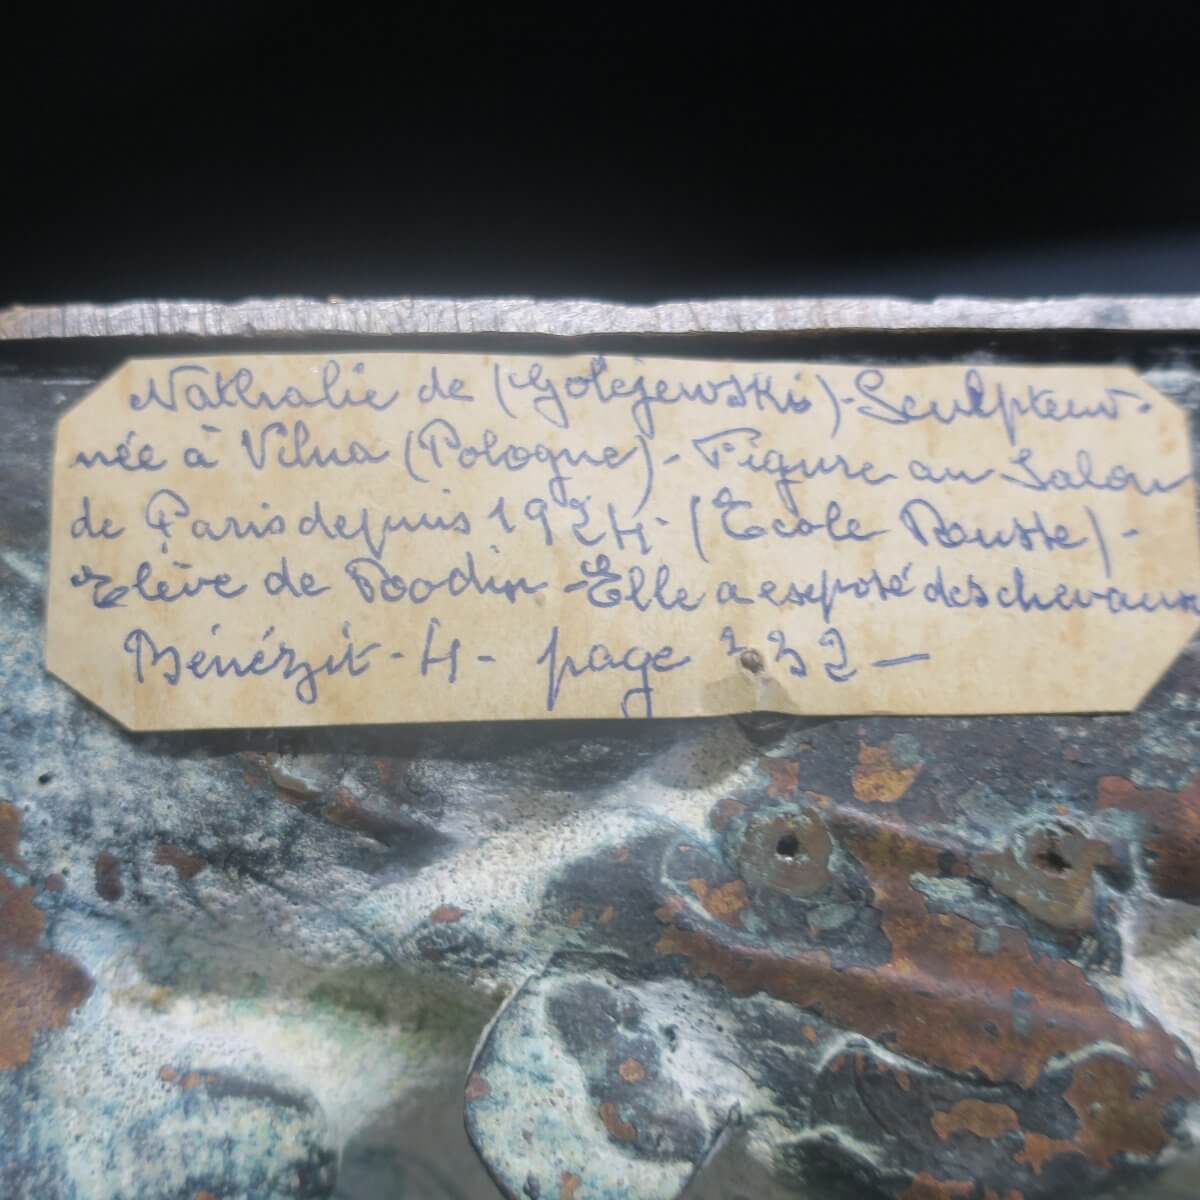 Nathalie de (Golejewski) - Sculpteur.
née à Vilna (Pologne) - Figure au Salon
de Paris depuis 1924. (École Rousse) -
Elève de Roodin - Elle a exposé des chevaux
Bénézit - 4 - page 332 —